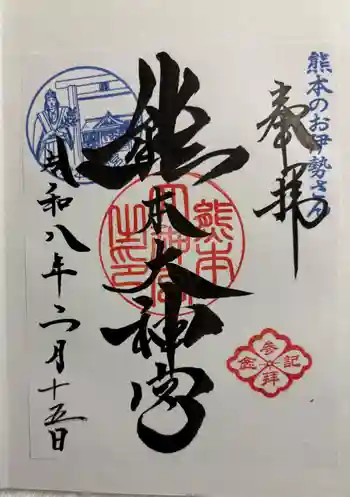 熊本のお伊勢さん
奉拝
熊本大神宮
熊本大神宮之印
参拝記念
令和八年二月十五日